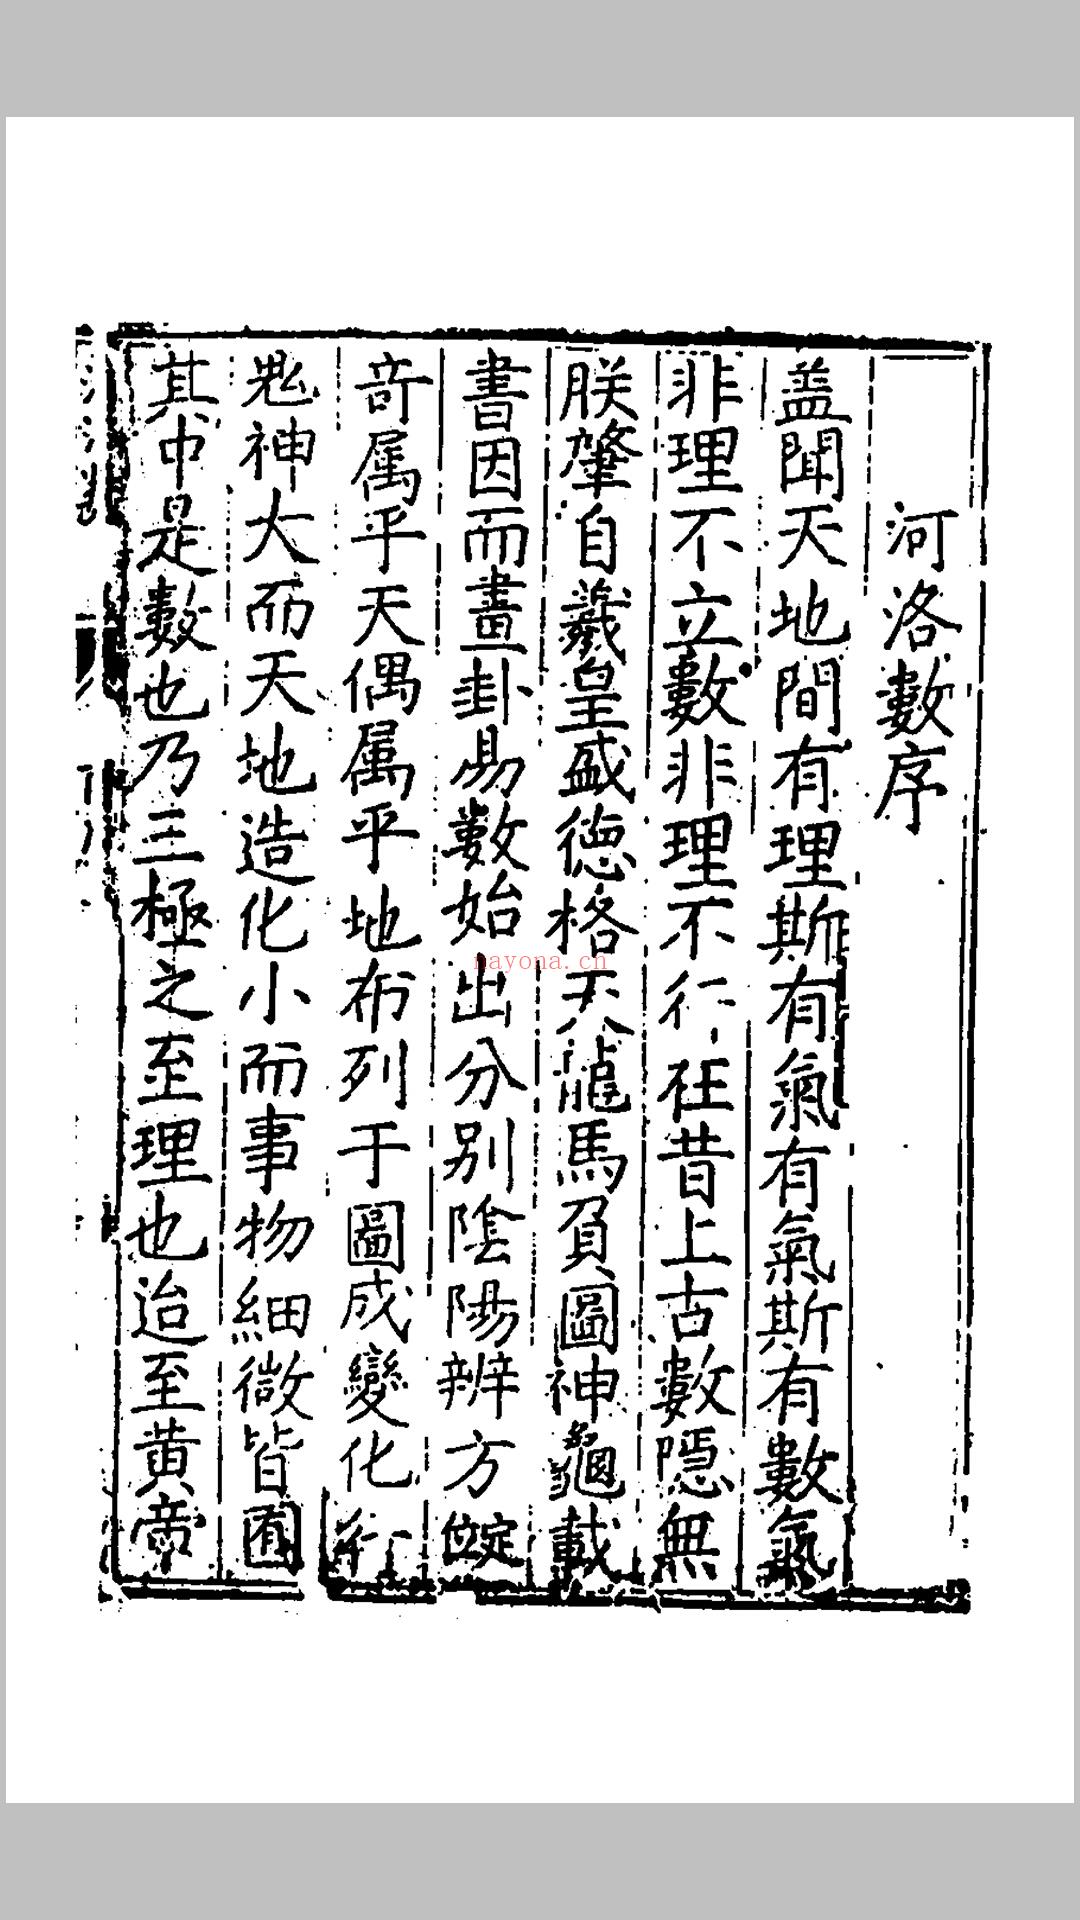 河洛數序
盖聞天地間有理斯有氣有氣斯有數氣
非理不立數非理不行在昔上古數隱無
朕肇自羲皇盛德格天龍馬負圖神龜載
書因而畫卦易數始出分別陰陽辨方定位
奇属乎天偶属乎地布列于圖成變化行
鬼神大而天地造化小而事物細微皆囿
其中是數也乃三極之至理也迨至黄帝
nayona.cn